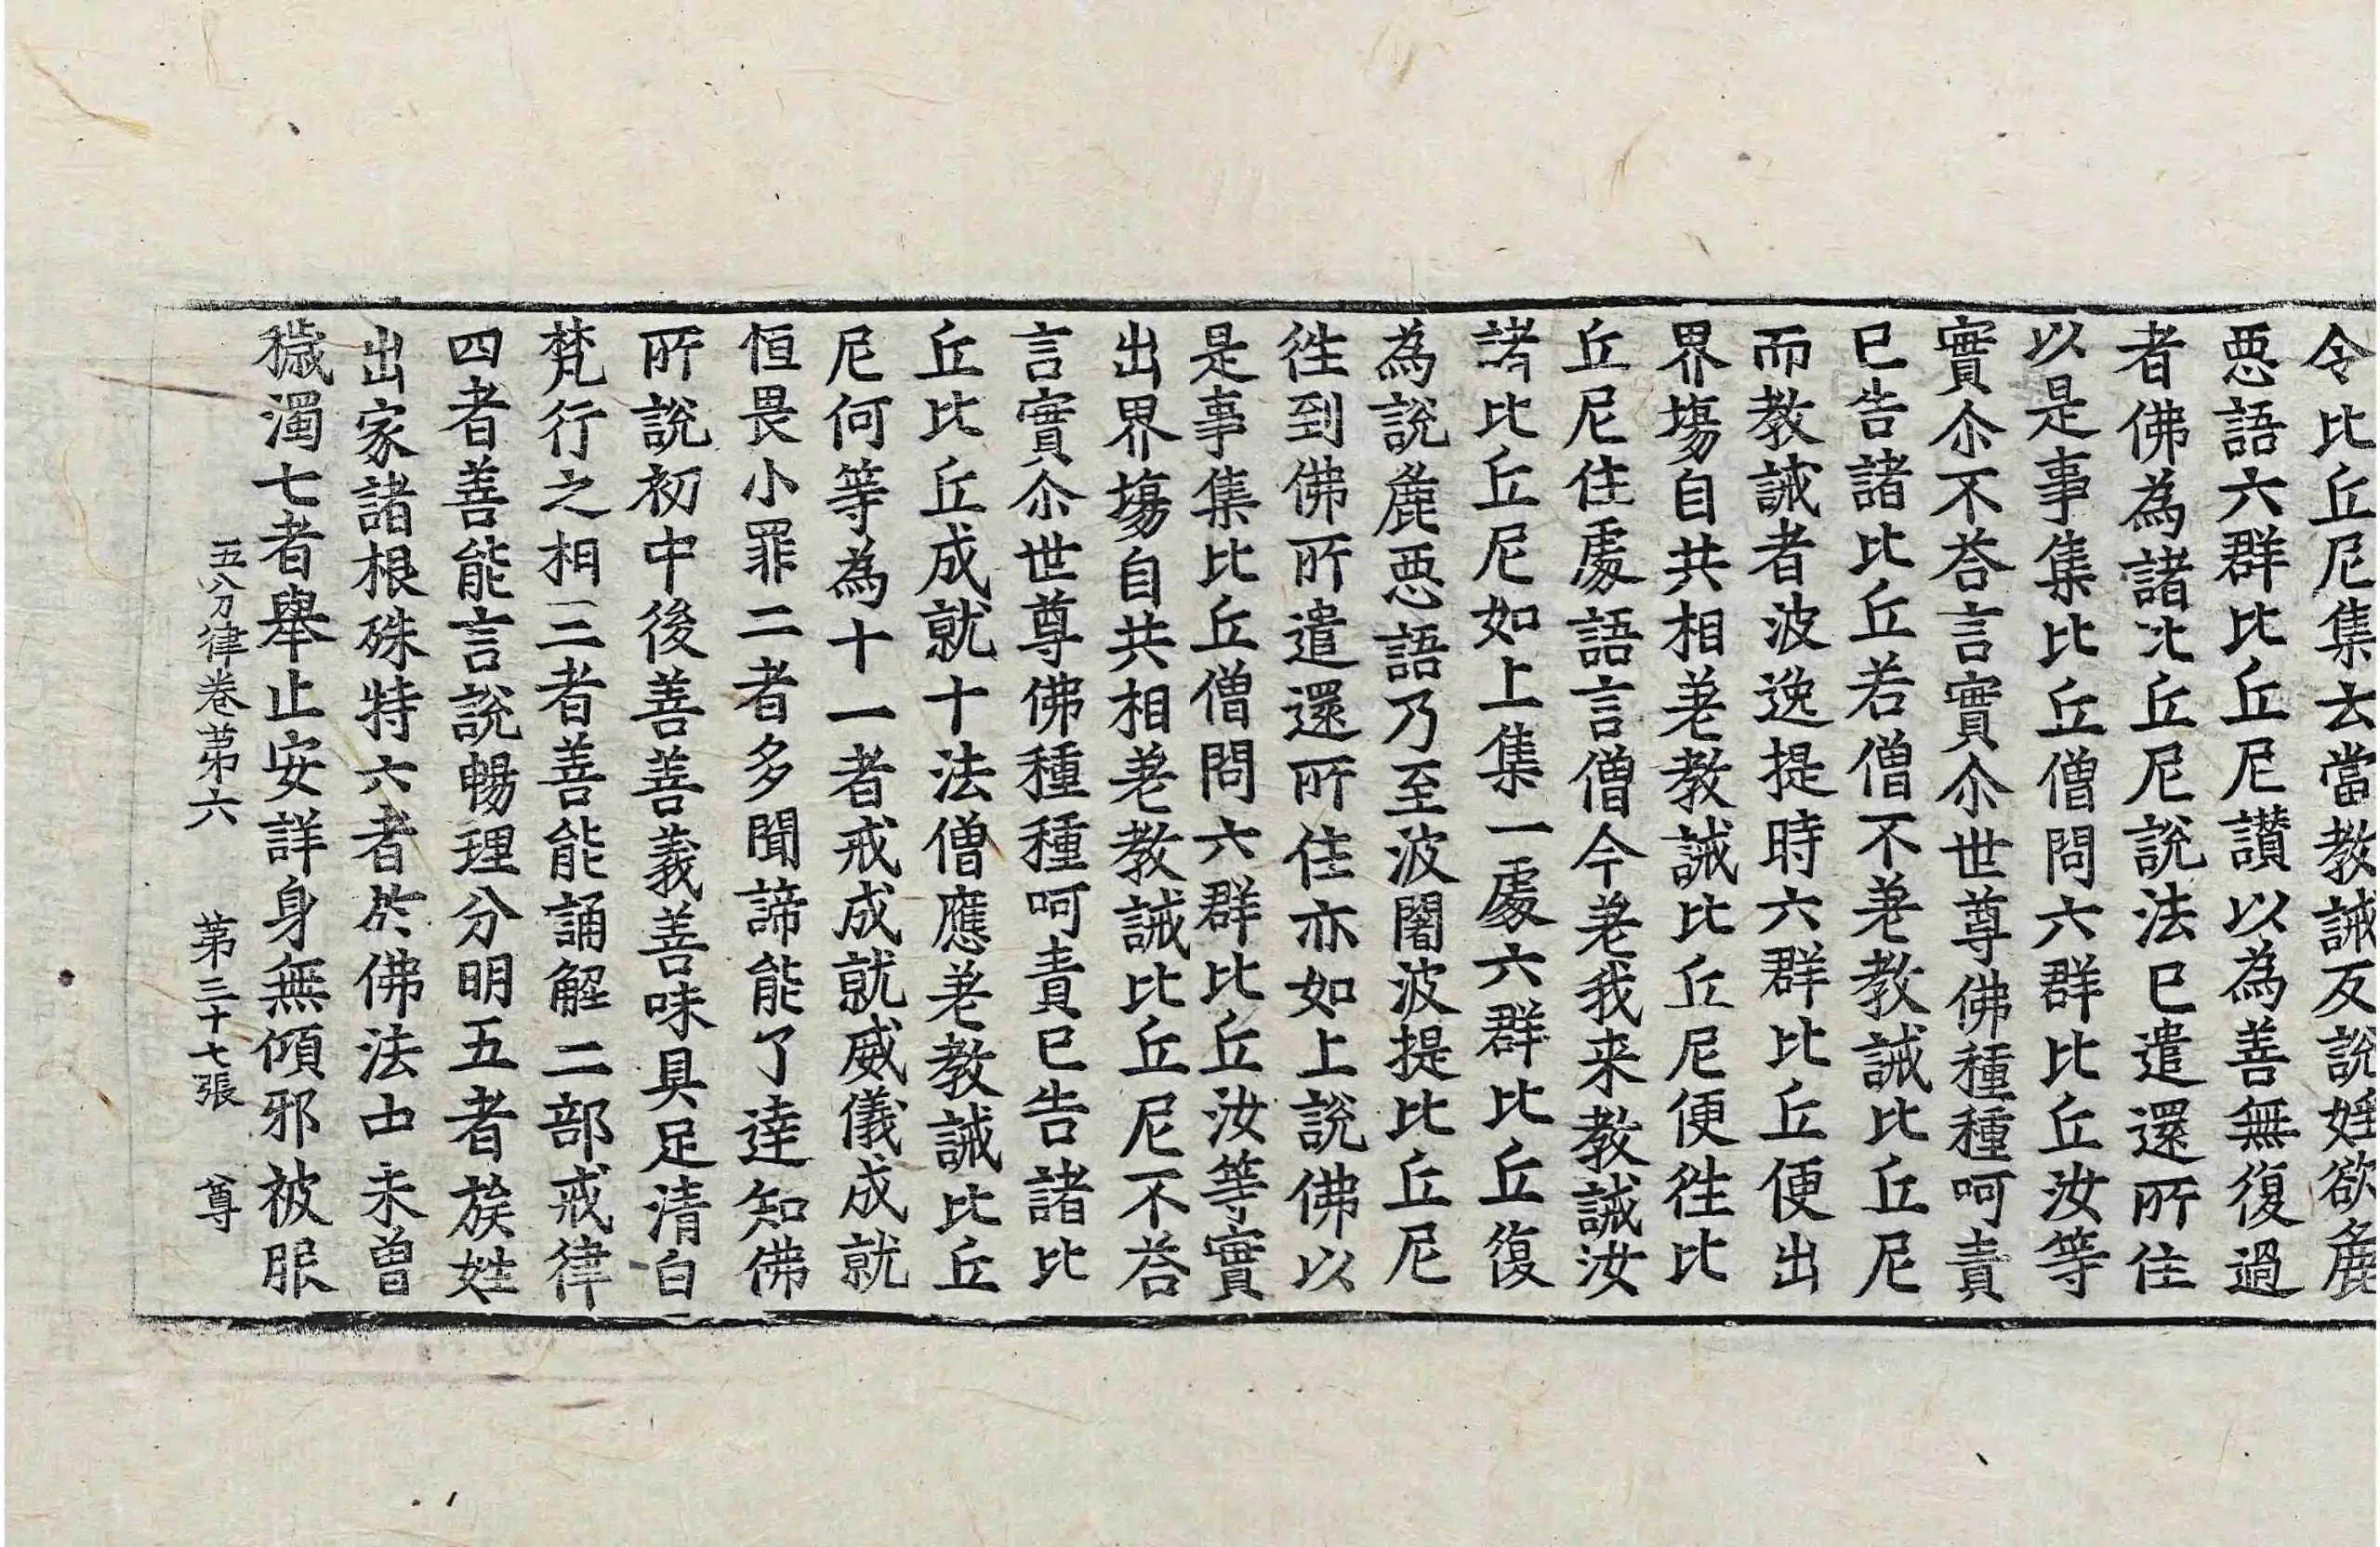 令比丘尼集去當教誡反說婬欲麁
惡語六群比丘尼讚以為善無復過
者佛為諸比丘尼說法已遣還所住
以是事集比丘僧問六群比丘汝等
實尒不荅言實尒世尊佛種種呵責
已告諸比丘若僧不差教誡比丘尼
而教誡者波逸提時六群比丘便出
界塲自共相差教誡比丘尼便徃比
丘尼住處語言僧今差我来教誡汝
諸比丘尼如上集一處六群比丘復
為說麁惡語乃至波闍波提比丘尼
徃到佛所遣還所住亦如上說佛以
是事集比丘僧問六群比丘汝等實
出界塲自共相差教誡比丘尼不荅
言實尒世尊佛種種呵責已告諸比
丘比丘成就十法僧應差教誡比丘
尼何等為十一者戒成就威儀成就
恒畏小罪二者多聞諦能了達知佛
所說初中後善善義善味具足清白
梵行之相三者善能誦解二部戒律
四者善能言說暢理分明五者族姓
出家諸根殊特六者於佛法中未曾
穢濁七者舉止安詳身無傾邪被服
五分律卷第六 第三十七張 尊